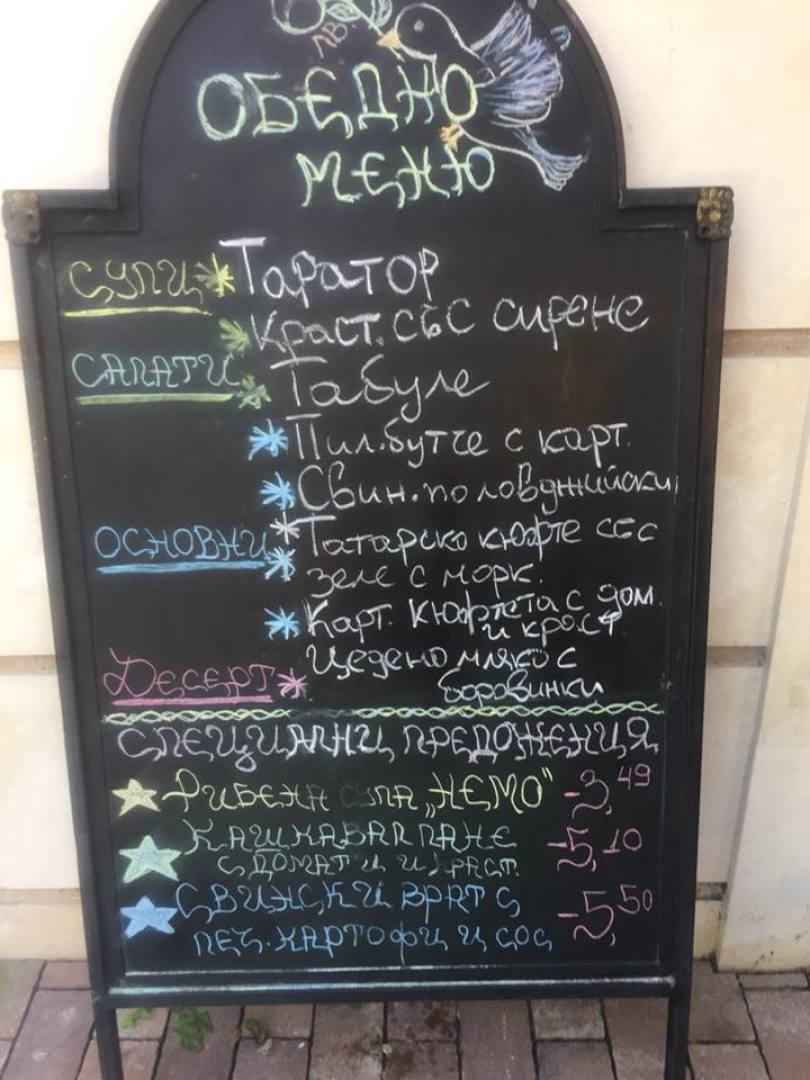 лв.
ОБЕДНО
МЕНЮ
СУПИ * Таратор
* Краст. със сирене
САЛАТИ * Табуле
* Пил. бутче с карт.
* Свин. по ловджийски
ОСНОВНИ * Татарско кюфте със
зеле с морк.
* Карт. кюфтета с дом.
и краст
ДЕСЕРТ * Цедено мляко с
боровинки
СПЕЦИАЛНИ ПРЕДЛОЖЕНИЯ
РИБЕНА СУПА „НЕМО“ -3,49
КАШКАВАЛ ПАНЕ -5,10
С ДОМАТИ И КРАСТ.
СВИНСКИ ВРАТ С -5,50
ПЕЧ. КАРТОФИ И СОС